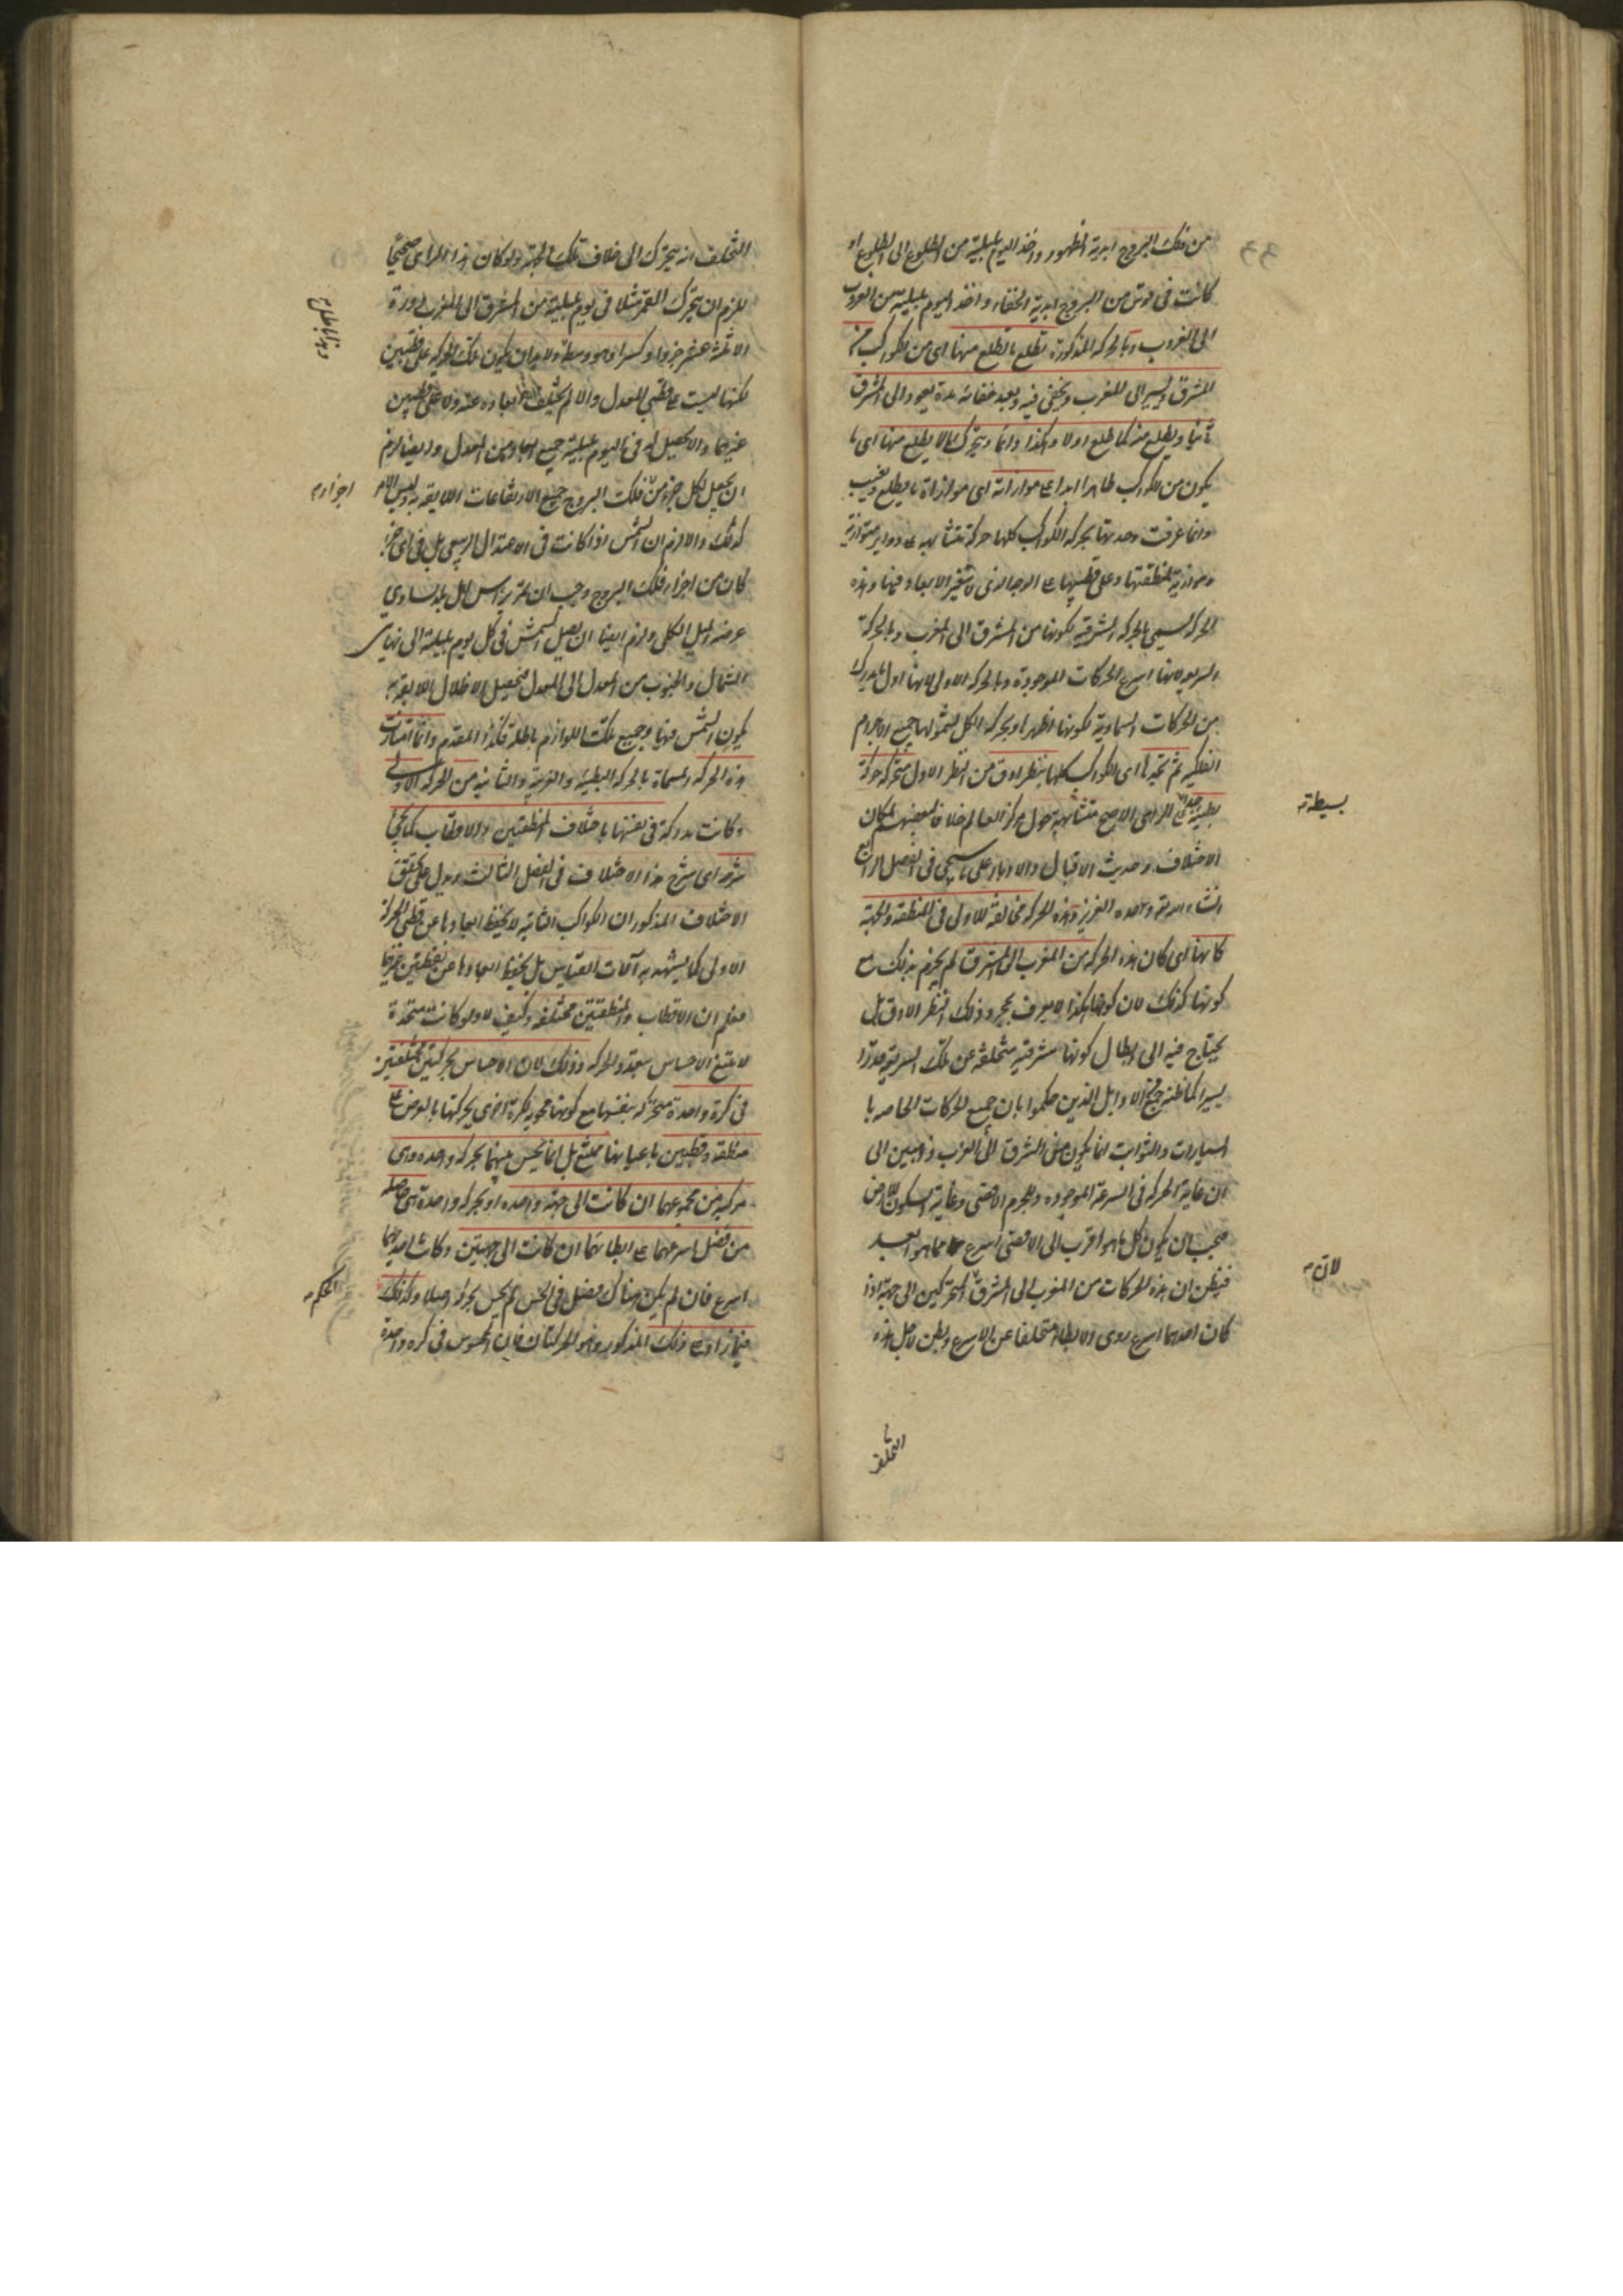 من فلك البروج ابدية الظهور واخذ اليوم بليلته من الطلوع الى الطلوع او
كانت في قوس من البروج ابدية الخفاء واخذ اليوم بليلته من الغروب
الى الغروب وبالحركة المذكورة تطلع ما تطلع منها اى من الكواكب من
المشرق ويسير الى المغرب ويخفى فيه وبعد خفائه مدة يعود الى المشرق
ثانيا ويطلع منه كما طلع اولا وهكذا دائما ويتحرك ما لا يطلع منها اى ما
يكون من الكواكب ظاهرا ابدا على موازاته اى موازاة ما يطلع ويغيب
وانما عرفت وحدتها بحركة الكواكب كلها حركة متشابهة على دواير متوازية
وموازية لمنطقتها وعلى قطبيها على الوجه الذى لا يتغير الابعاد فيها وهذه
الحركة تسمى بالحركة الشرقية لكونها من المشرق الى المغرب وبالحركة
السريعة لانها اسرع الحركات الموجودة وبالحركة الاولى لانها اول ما يدرك
من الحركات السماوية لكونها اظهر او بحركة الكل لشمولها جميع الاجرام
الفلكية ثم نجدها اى الكواكب كلها بنظر ادق من النظر الاول متحركة حركة
بطيئة على الراى الاصح متشابهة حول مركز العالم خلافا لبعضهم لمكان
الاختلاف وحديث الاقبال والادبار على ما سيجئ في الفصل الرابع
انشاء الله وحده العزيز وهذه الحركة مخالفة للاولى في المنطقة والجهة
كانها اى كان هذه الحركة من المغرب الى المشرق لم يجزم بذلك مع
كونها كذلك لان كونها هكذا لا يعرف بمجرد ذلك النظر الادق بل
يحتاج فيه الى ابطال كونها مشرقية متخلفة عن تلك السريعة قدرا
يسيرا كما ظنه جمع من الاوايل الذين حكموا بان جميع الحركات الخاصة با
لسيارات والثوابت انما يكون من الشرق الى الغرب ذاهبين الى
ان غاية الحركة في السرعة الموجودة للجرم الاقصى وغاية السكون للارض
فيجب ان يكون كل ما هو اقرب الى الاقصى اسرع مما هو ابعد
فيظن ان هذه الحركات من المغرب الى المشرق المتحركين الى جهة اذا
كان احدهما اسرع يرى الابطاء متخلفا عن الاسرع ويظن لاجل هذه
بسيطة
لان
التخلف
التخلف انه يتحرك الى خلاف تلك الجهة ولو كان هذا الراى صحيحا
للزم ان يتحرك القمر مثلا في يوم بليلته من المشرق الى المغرب دورة
الا ثلثة عشر جزوا وكسرا وهو وسطه ولابد ان يكون تلك الحركة على قطبين
لكنها ليست على قطبى المعدل والا لم يختلف ابعاده عنه ولا على قطبين
غيرهما والا لحصل له في اليوم بليلته جميع ابعاده من المعدل وايضا لزم
ان يحصل لكل جزء من فلك البروج جميع الارتفاعات اللايقة به وليس الامر
كذلك والا لزم ان الشمس اذا كانت في الاعتدال الربيعى بل في اى جزء
كان من اجزاء فلك البروج وجب ان تمر براس اهل بلد يساوى
عرضه الميل الكلى ولزم ايضا ان يصل الشمس في كل يوم بليلته الى نهايتى
الشمال والجنوب من المعدل الى المعدل فيحصل الاظلال اللايقة به
يكون الشمس فيها وجميع تلك اللوازم باطلة فكذا المقدم وانما امتازت
هذه الحركة المسماة بالحركة البطيئة والغربية والثانية من الحركة الاولى
وكانت مدركة في نفسها باختلاف المنطقتين والاقطاب كما يجئ
شرحه اى شرح هذا الاختلاف في الفصل الثالث ويدل على تحقق
الاختلاف المذكور ان الكواكب الثابتة لا يحفظ ابعادها عن قطبى الحركة
الاولى كما يشهد به آلات القياس بل يحفظ ابعادها عن نقطتين غيرهما
فعلم ان الاقطاب والمنطقتين مختلفة وكيف لا ولو كانت متحدة
لامتنع الاحساس بتعدد الحركة وذلك لان الاحساس بحركتين مختلفتين
في كرة واحدة متحركة بنفسها مع كونها محوية لكرة اخرى يحركها بالعرض على
منطقة وقطبين باعيانها ممتنع بل انما يحس فيهما بحركة واحدة وهى
مركبة من مجموعهما ان كانت الى جهة واحدة او بحركة واحدة هى حاصلة
من فضل اسرعهما على ابطائهما ان كانت الى جهتين وكانت احديهما
اسرع فان لم يكن هناك فضل في الحس لم يحس بحركة اصلا وكذلك
فيما زاد على ذلك المذكور وهو الحركتان فان المحسوس في كرة واحدة
وهذا باطل
اجزاء
الحكم